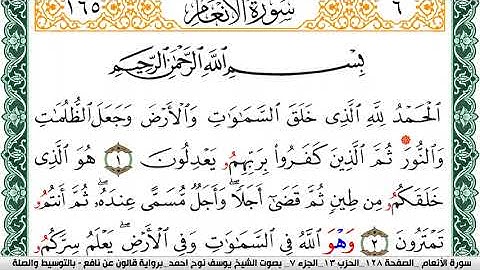 ٦ سُورَةُ الْأَنْعَامِ ١٦٥
بِسْمِ اللَّهِ الرَّحْمَٰنِ الرَّحِيمِ
الْحَمْدُ لِلَّهِ الَّذِي خَلَقَ السَّمَاوَاتِ وَالْأَرْضَ وَجَعَلَ الظُّلُمَاتِ
وَالنُّورَ ثُمَّ الَّذِينَ كَفَرُوا بِرَبِّهِمُو يَعْدِلُونَ ١ هُوَ الَّذِي
خَلَقَكُمُو مِن طِينٍ ثُمَّ قَضَىٰ أَجَلًا وَأَجَلٌ مُّسَمًّى عِندَهُ ثُمَّ أَنتُمُو
تَمْتَرُونَ ٢ وَهْوَ اللَّهُ فِي السَّمَاوَاتِ وَفِي الْأَرْضِ يَعْلَمُ سِرَّكُمُو
سورة الأنعام _الصفحة ١٢٨_ الحزب ١٣_ الجزء ٧_ بصوت الشيخ يوسف نوح احمد _برواية قالون عن نافع - بالتوسيط والصلة